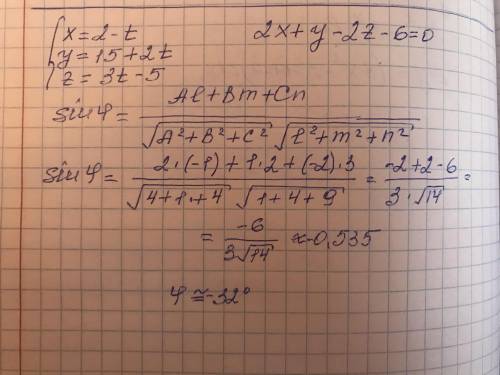 { x = 2 - t
y = 15 + 2t
z = 3t - 5
2x + y - 2z - 6 = 0
sin φ = (Al + Bm + Cn) / (√(A² + B² + C²) √(l² + m² + n²))
sin φ = (2·(-1) + 1·2 + (-2)·3) / (√(4+1+4) √(1+4+9)) = (-2+2-6) / (3·√14) =
= -6 / (3√14) ≈ -0,535
φ ≅ -32°